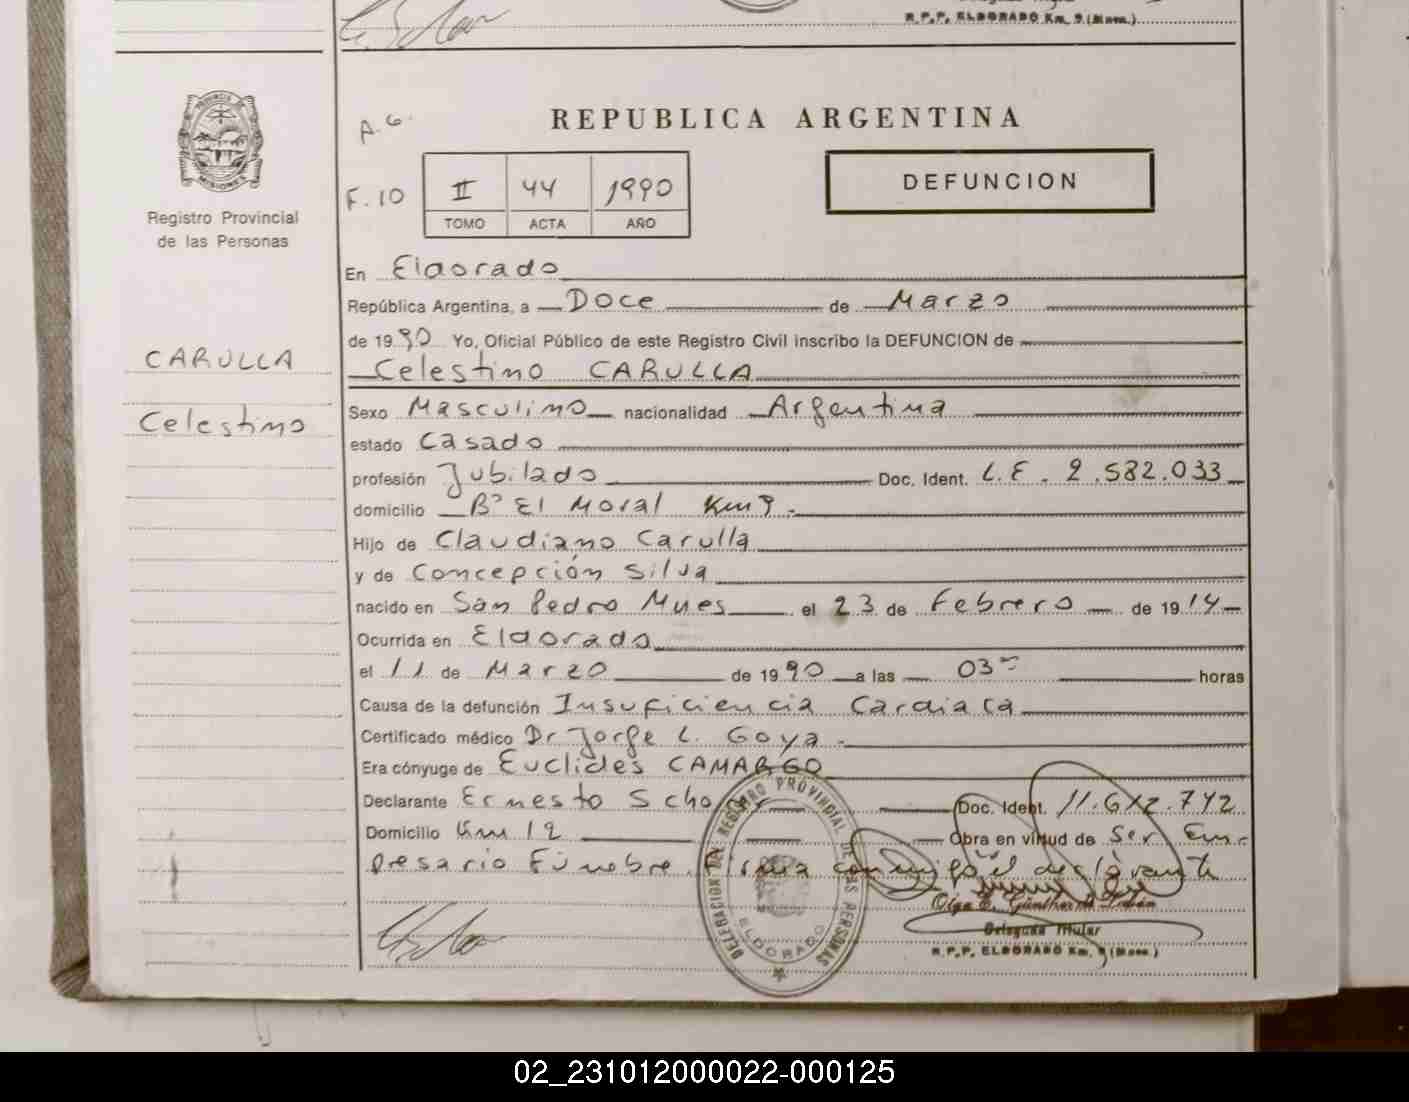 R.P.P. ELDORADO Km. 9 (Mnes.)
PROVINCIA DE
MISIONES
Registro Provincial
de las Personas
CARULLA
Celestino
A.G.
REPUBLICA ARGENTINA
F. 10
II 44 1990
TOMO ACTA AÑO
DEFUNCION
En Eldorado
República Argentina, a Doce de Marzo
de 1990 Yo, Oficial Público de este Registro Civil inscribo la DEFUNCION de
Celestino CARULLA
Sexo Masculino nacionalidad Argentina
estado Casado
profesión Jubilado Doc. Ident. L.E. 2.582.033
domicilio Bº El Moral Km 9.
Hijo de Claudiano Carulla
y de Concepción Silva
nacido en San Pedro Mnes el 23 de Febrero de 1914
Ocurrida en Eldorado
el 11 de Marzo de 1990 a las 03 horas
Causa de la defunción Insuficiencia Cardiaca
Certificado médico Dr Jorge L. Goya.
Era cónyuge de Euclides CAMARGO
Declarante Ernesto Doc. Ident. 11.612.742
Domicilio Km 12 Obra en virtud de Ser Em-
presario Fúnebre. Firma conmigo el declarante
DELEGACION DEL REGISTRO PROVINCIAL DE LAS PERSONAS
ELDORADO
Olga E.
Delegada Titular
R.P.P. ELDORADO Km. 9 (Mnes.)
02_231012000022-000125